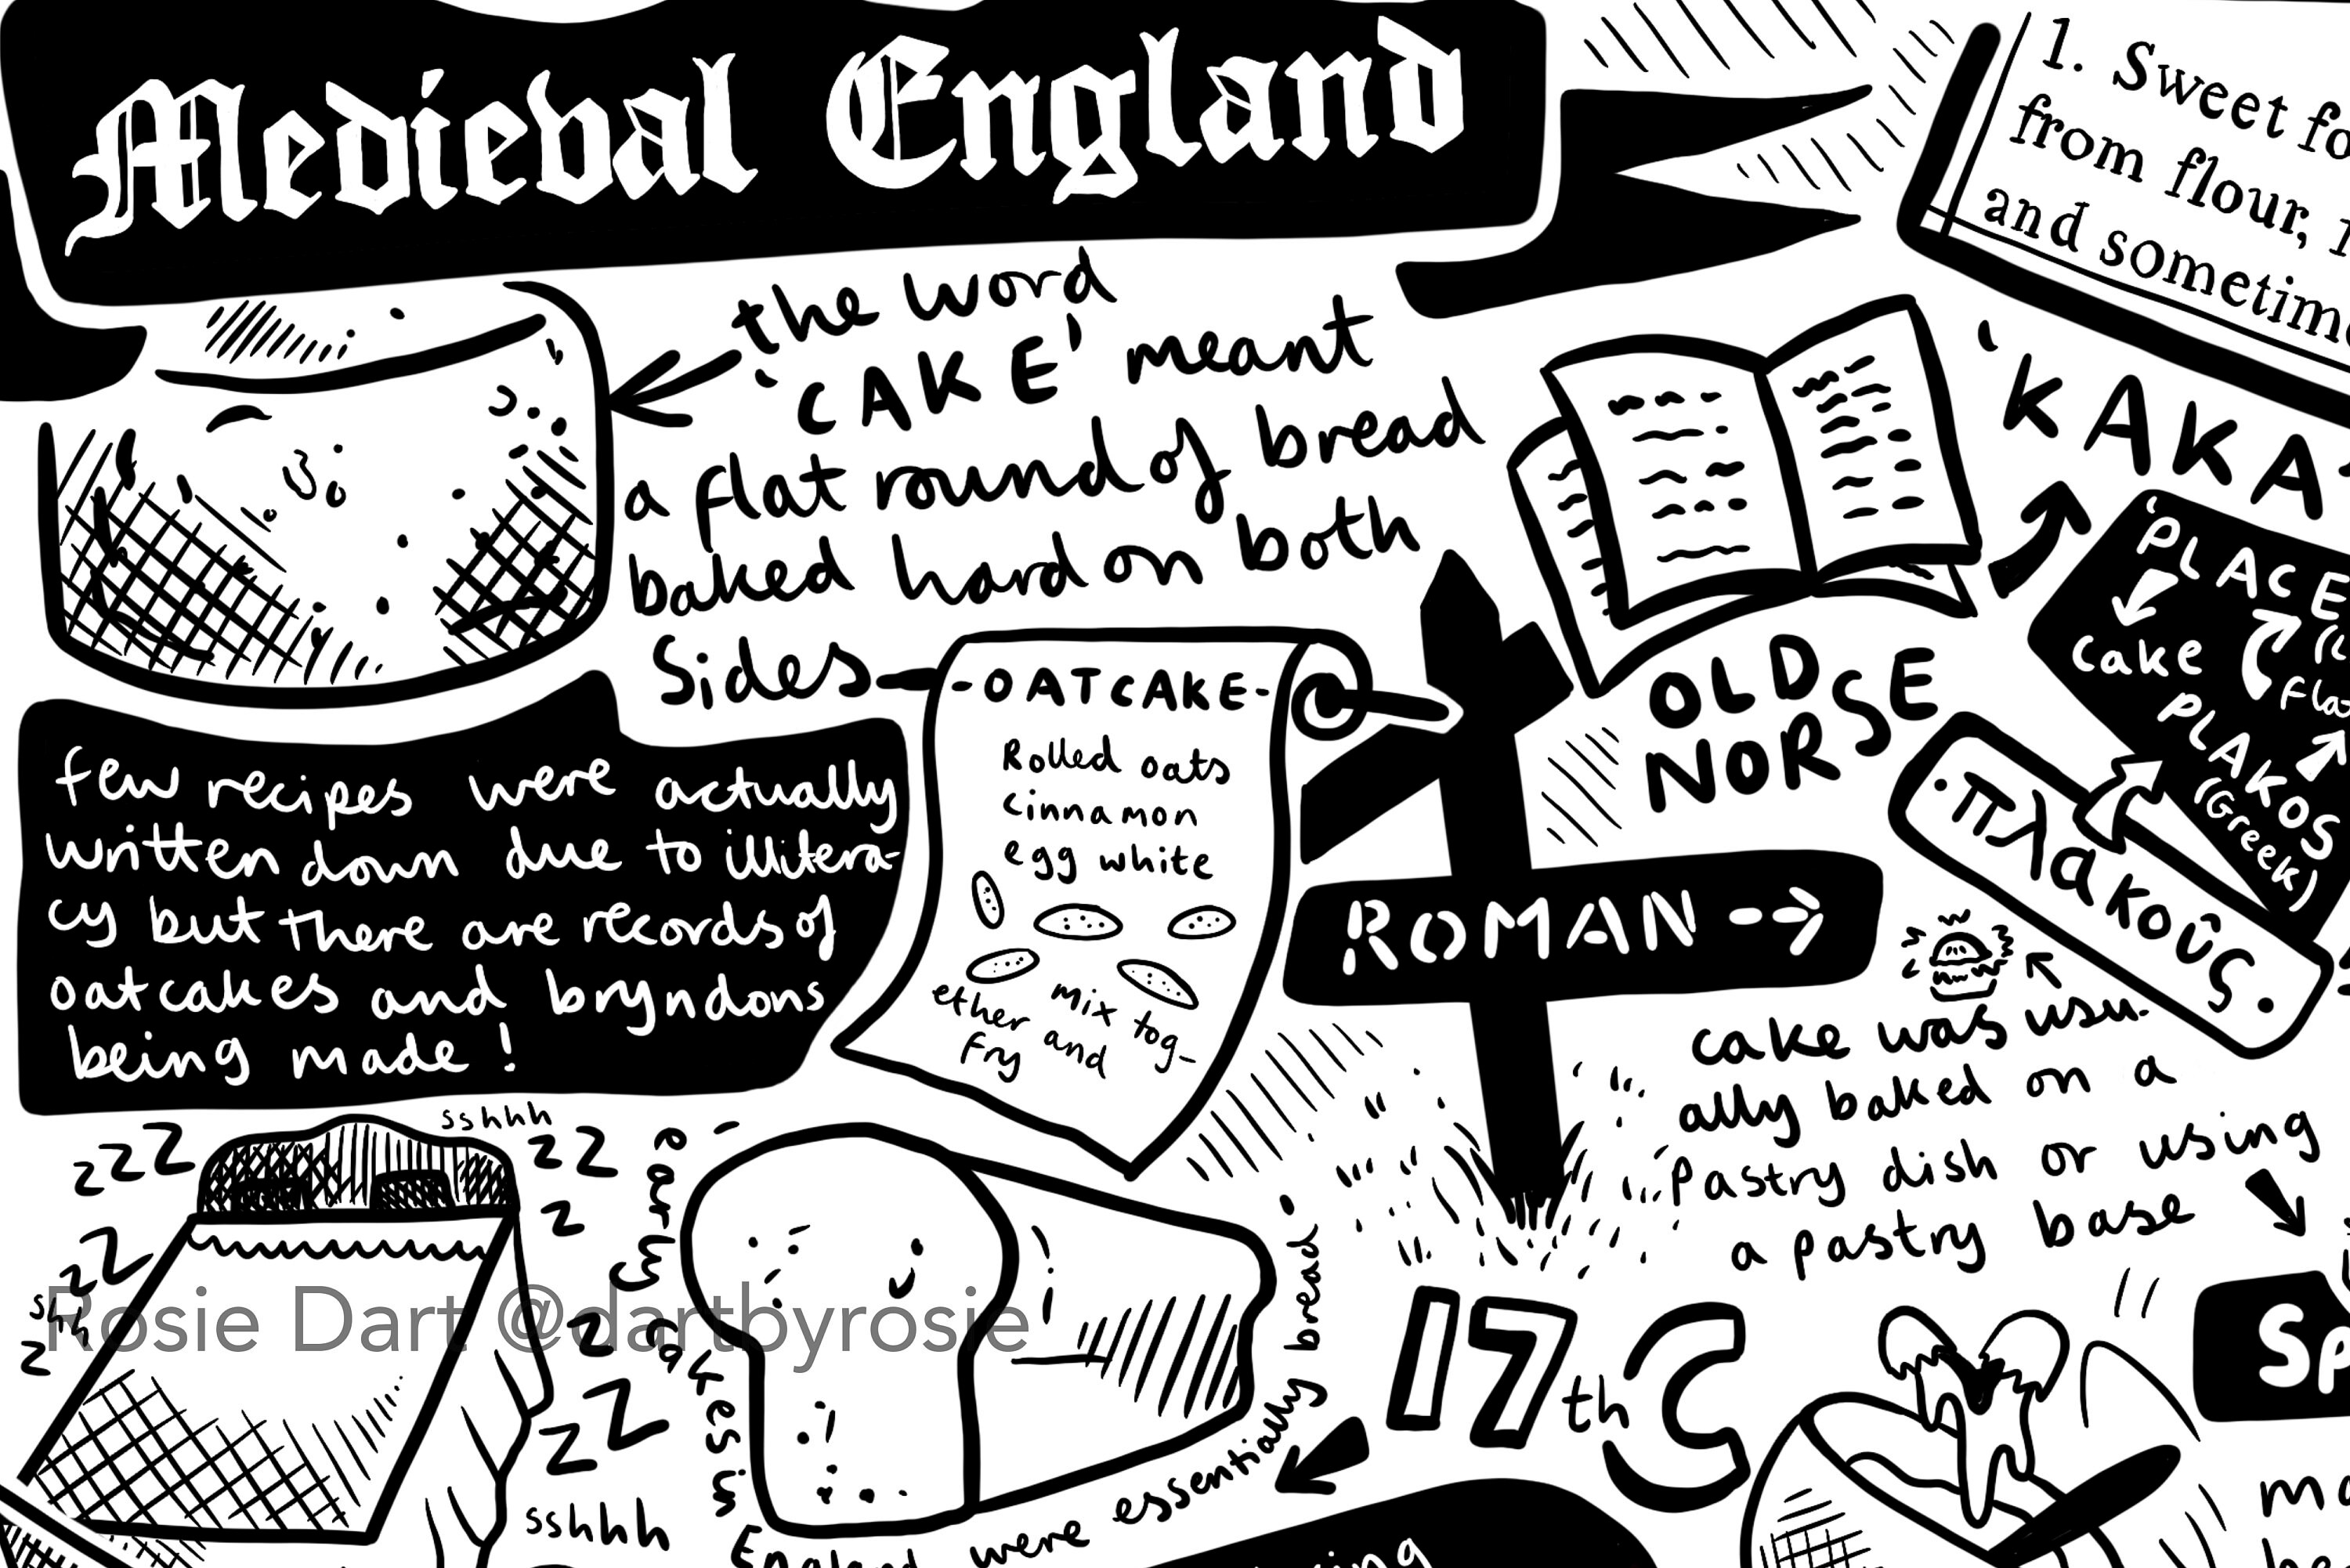 Medieval England
1. Sweet fo
from flour,
and sometim
the word
'CAKE' meant
a flat round of bread
baked hard on both
Sides
-OATCAKE-
Rolled oats
cinnamon
egg white
mix tog-
ether
and
fry
few recipes were actually
written down due to illitera-
cy but there are records of
oatcakes and bryndons
being made!
OLD
NORSE
'KAKA
'PLACE
cake
Fla
PLAKOS
(Greek)
πλακοῦς.
ROMAN →
cake was usu-
ally baked on a
Pastry dish or using
a pastry base
17th C
sshhh
zzz
zz
z
z
zz
shh
z
z
z
z
sshhh
early
cakes in
England were essentially bread.
Rosie Dart @dartbyrosie
Sp
ma